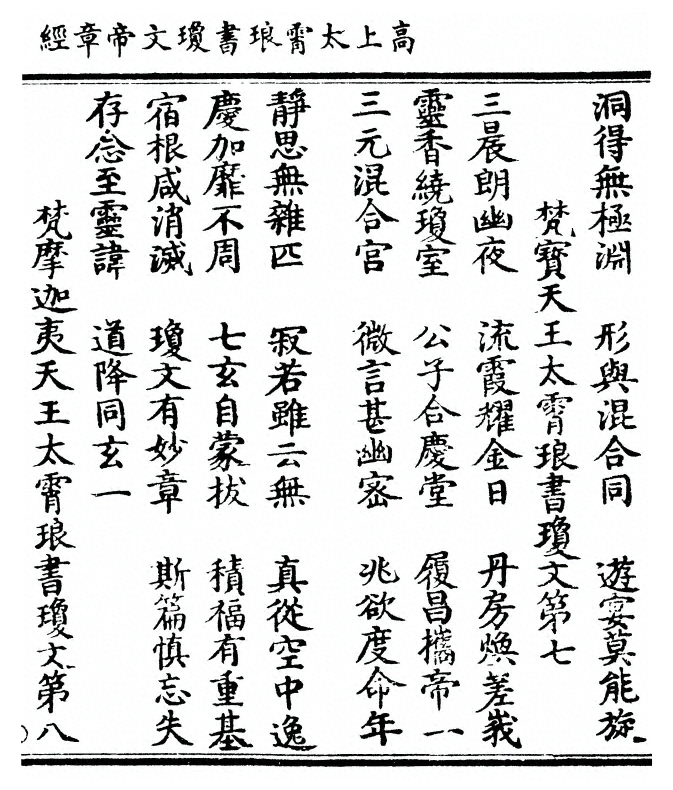 高上太霄琅書瓊文帝章經
洞得無極淵 形與混合同 遊宴莫能旋
梵寶天王太霄琅書瓊文第七
三晨朗幽夜 流霞耀金日 丹房煥差峩
靈香繞瓊室 公子合慶堂 履昌攜帝一
三元混合宮 微言甚幽密 兆欲度命年
靜思無雜匹 寂若雖云無 真從空中逸
慶加靡不周 七玄自蒙拔 積福有重基
宿根咸消滅 瓊文有妙章 斯篇慎忘失
存念至靈諱 道降同玄一
梵摩迦夷天王太霄琅書瓊文第八